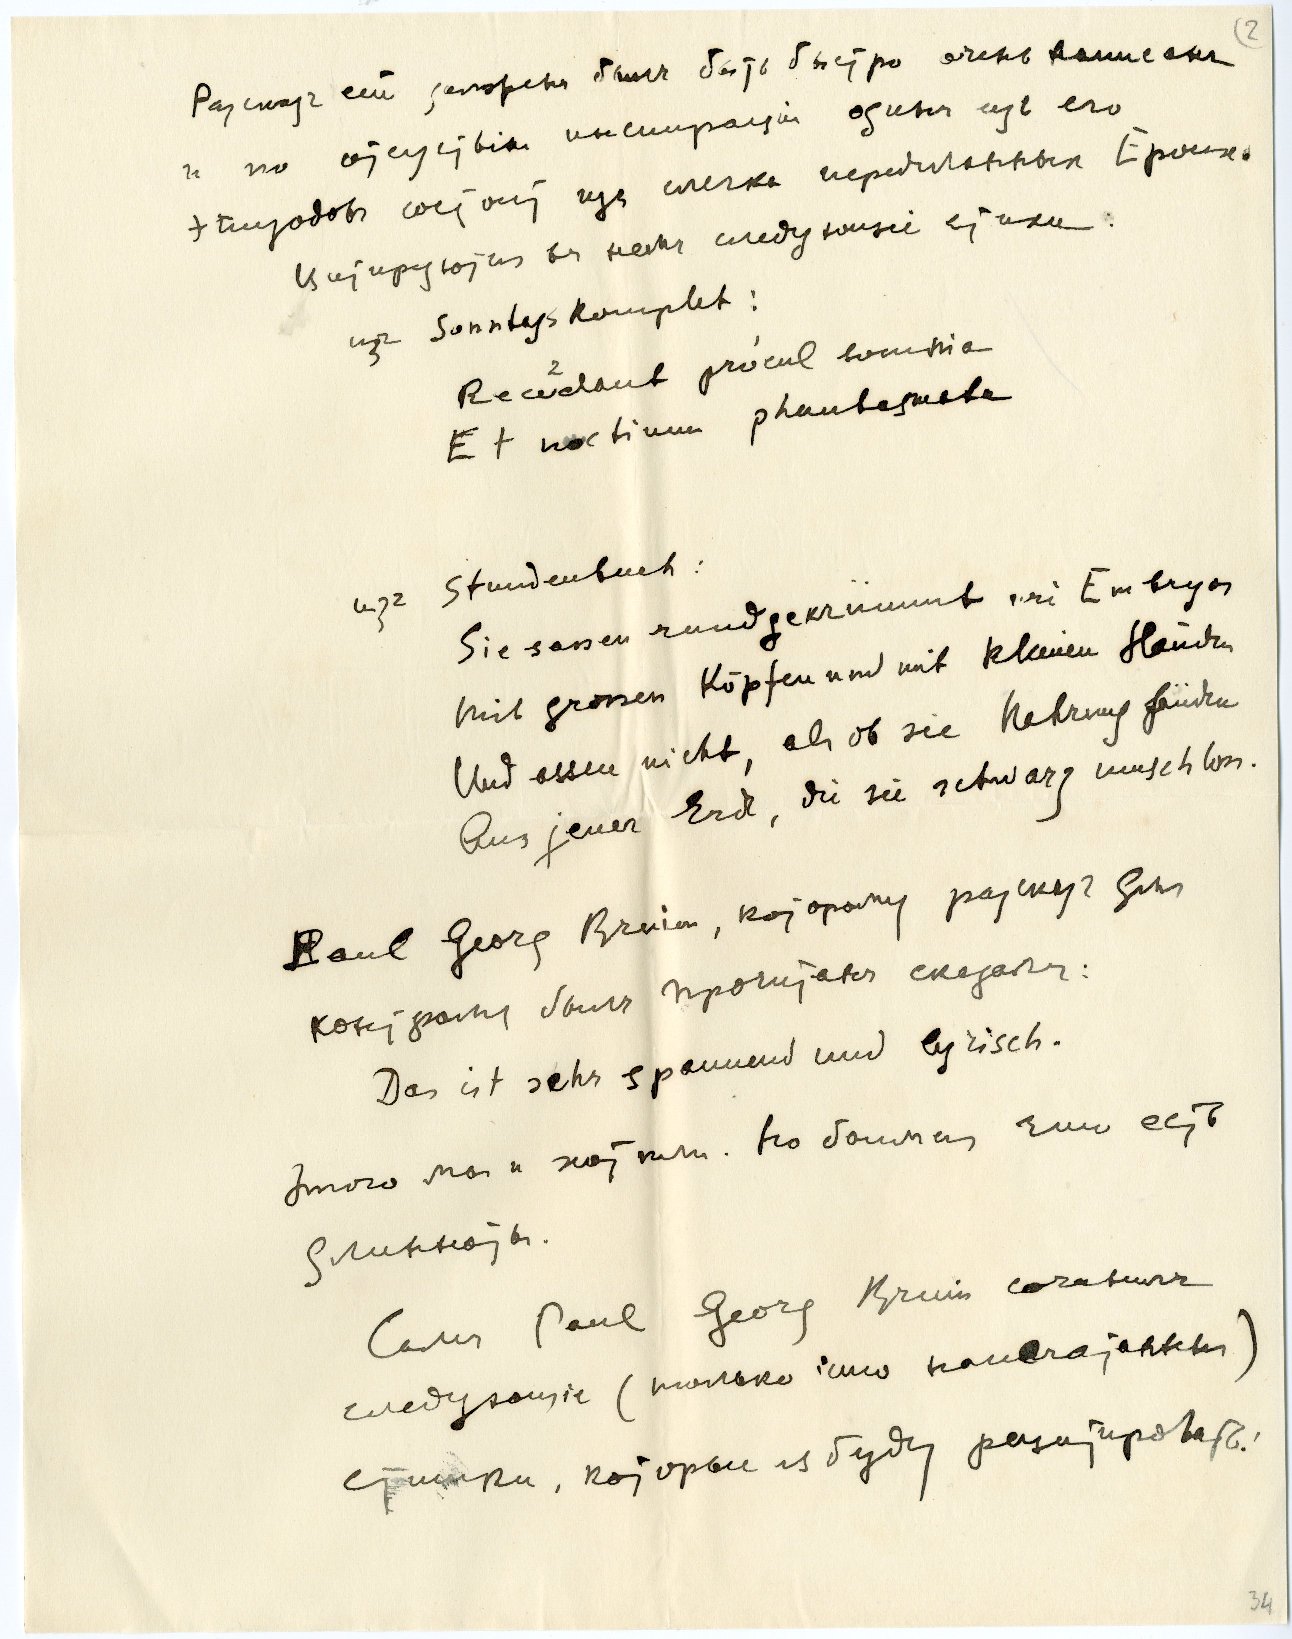 (2
Разсказъ сей долженъ былъ быть быстро очень написанъ
и по отсутствію инспираціи одинъ изъ его
эпизодовъ состоитъ изъ слегка передѣланныхъ
Цитируются въ немъ слѣдующіе стихи:
изъ Sonntagskomplet:
Recedant prócul somnia
Et noctium phantasmata
изъ Stundenbuch:
Sie sassen rundgekrümmt wie Embryos
Mit grossen Köpfen und mit kleinen Händen
Und assen nicht, als ob sie Nahrung fänden
Aus jener Erde, die sie schwarz umschloss.
Paul Georg Bruin, которому разсказъ
которому былъ прочитанъ сказалъ:
Das ist sehr spannend und lyrisch.
Этого мы и хотѣли. Но къ ему есть
длинноты.
Самъ Paul Georg Bruin сочинилъ
слѣдующіе (только что напечатанные)
стишки, которые я буду рецитировать!
34